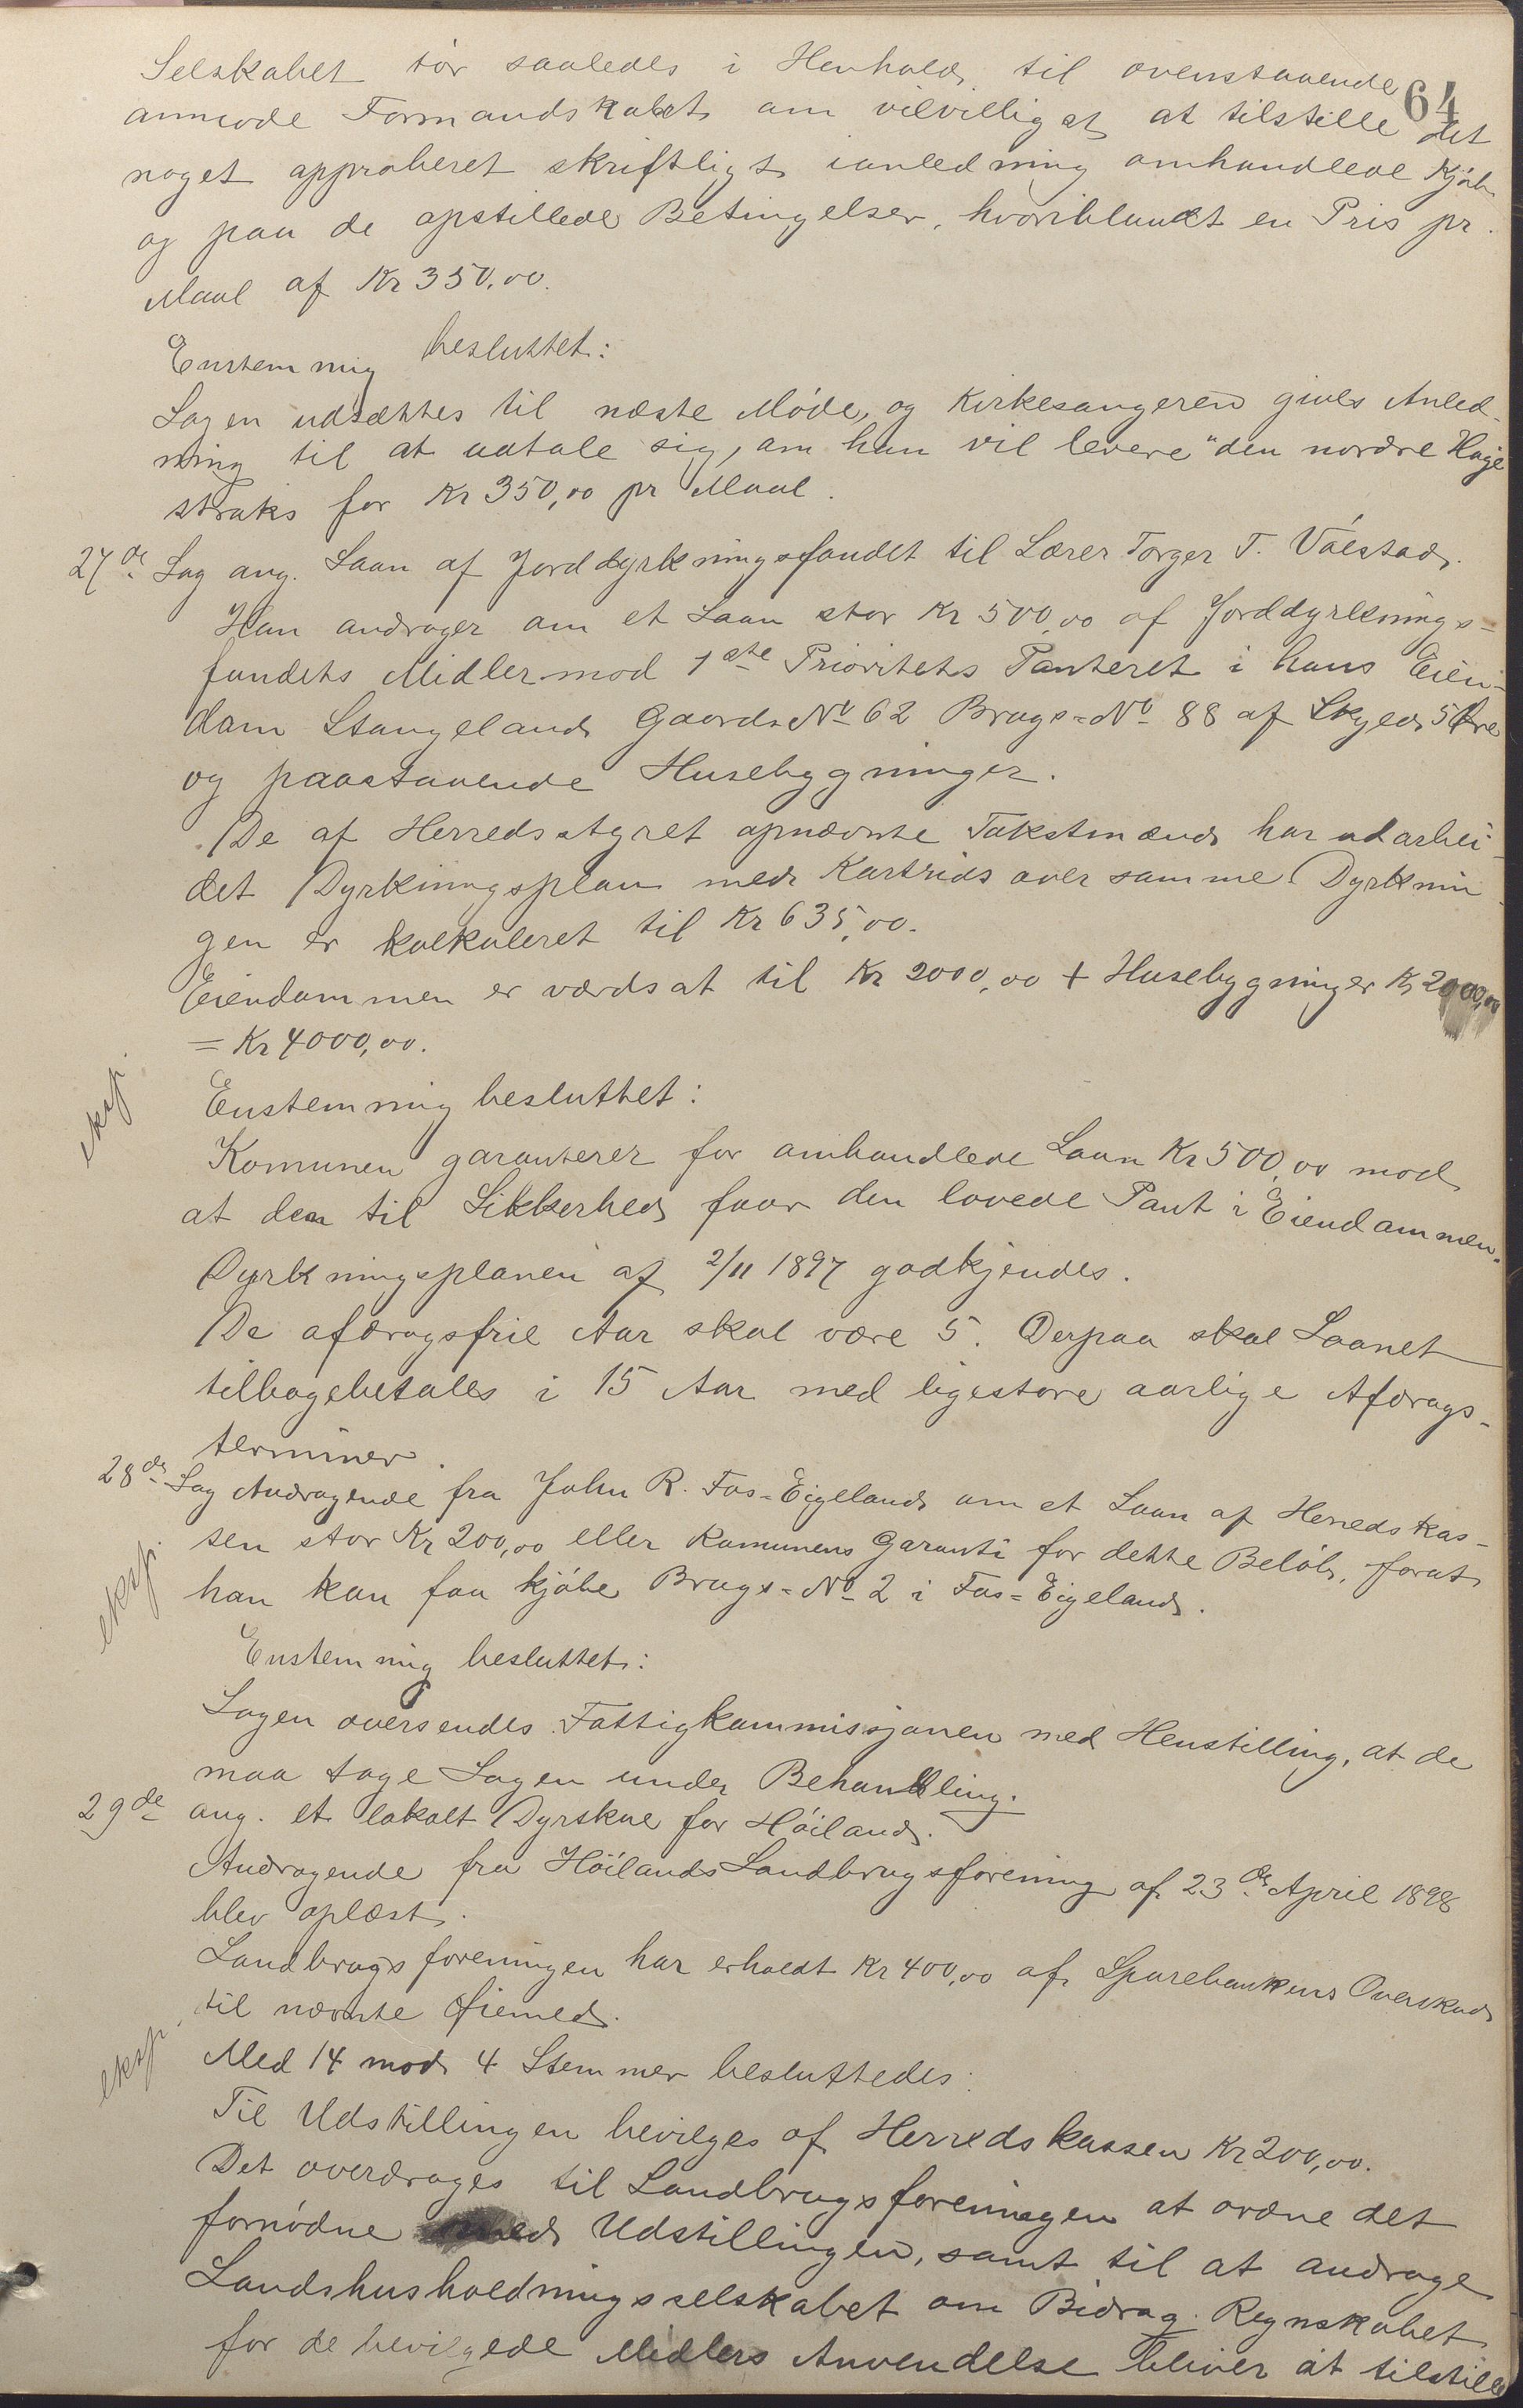 64
Selskabet tør saaledes i Henhold til ovenstaaende
anmode Formandskabet om velvilligst at tilstille det
noget approberet skriftligt ianledning omhandlede Kjøb
og paa de opstillede Betingelser, hvoriblandt en Pris pr.
Maal af Kr 350,00.
Enstemmig besluttet:
Sagen udsættes til næste Møde, og Kirkesangeren gives Anled-
ning til at udtale sig, om han vil levere "den nordre Hage
straks for Kr 350,00 pr Maal.
27de Sag ang. Laan af Jorddyrkningsfondet til Lærer Torger T. Vølstad.
Han andrager om et Laan stor Kr 500,00 af Jorddyrknings-
fondets Midler mod 1ste Prioritets Panteret i hans Eien-
dom Stangeland Gaards No 62 Brugs-No 88 af Skyld 5 Øre
og paastaaende Husebygninger.
De af Herredsstyret opnævnte Takstmænd har udarbei-
det Dyrkningsplan med Kartrids over samme. Dyrknin-
gen er kalkuleret til Kr 635,00.
Eiendommen er værdsat til Kr 2000,00 + Husebygninger Kr 2000,00
= Kr 4000,00.
eksp.
Enstemmig besluttet:
Komunen garanterer for omhandlede Laan Kr 500,00 mod
at den til Sikkerhed faar den lovede Pant i Eiendommen.
Dyrkningsplanen af 2/11 1897 godkjendes.
De afdragsfrie Aar skal være 5. Derpaa skal Laanet
tilbagebetales i 15 Aar med ligestore aarlige Afdrags-
terminer.
28de Sag Andragende fra John R. Fos-Eigeland om et Laan af Herredskas-
sen stor Kr 200,00 eller Komunens Garanti for dette Beløb, forat
han kan faa kjøbe Brugs-No 2 i Fos-Eigeland.
eksp.
Enstemmig besluttet:
Sagen oversendes Fattigkommissjonen med Henstilling, at de
maa tage Sagen under Behandling.
29de ang. et lokalt Dyrskue for Høiland.
Andragende fra Høilands Landbrugsforening af 23de April 1898
blev oplæst.
Landbrugsforeningen har erholdt Kr 400,00 af Sparebankens Overskud
til nævnte Øiemed.
eksp.
Med 14 mod 4 Stemmer besluttedes:
Til Udstillingen bevilges af Herredskassen Kr 200,00.
Det overdrages til Landbrugsforeningen at ordne det
fornødne med Udstillingen, samt til at andrage
Landshusholdningsselskabet om Bidrag. Regnskabet
for de bevilgede Midlers Anvendelse bliver at tilstille